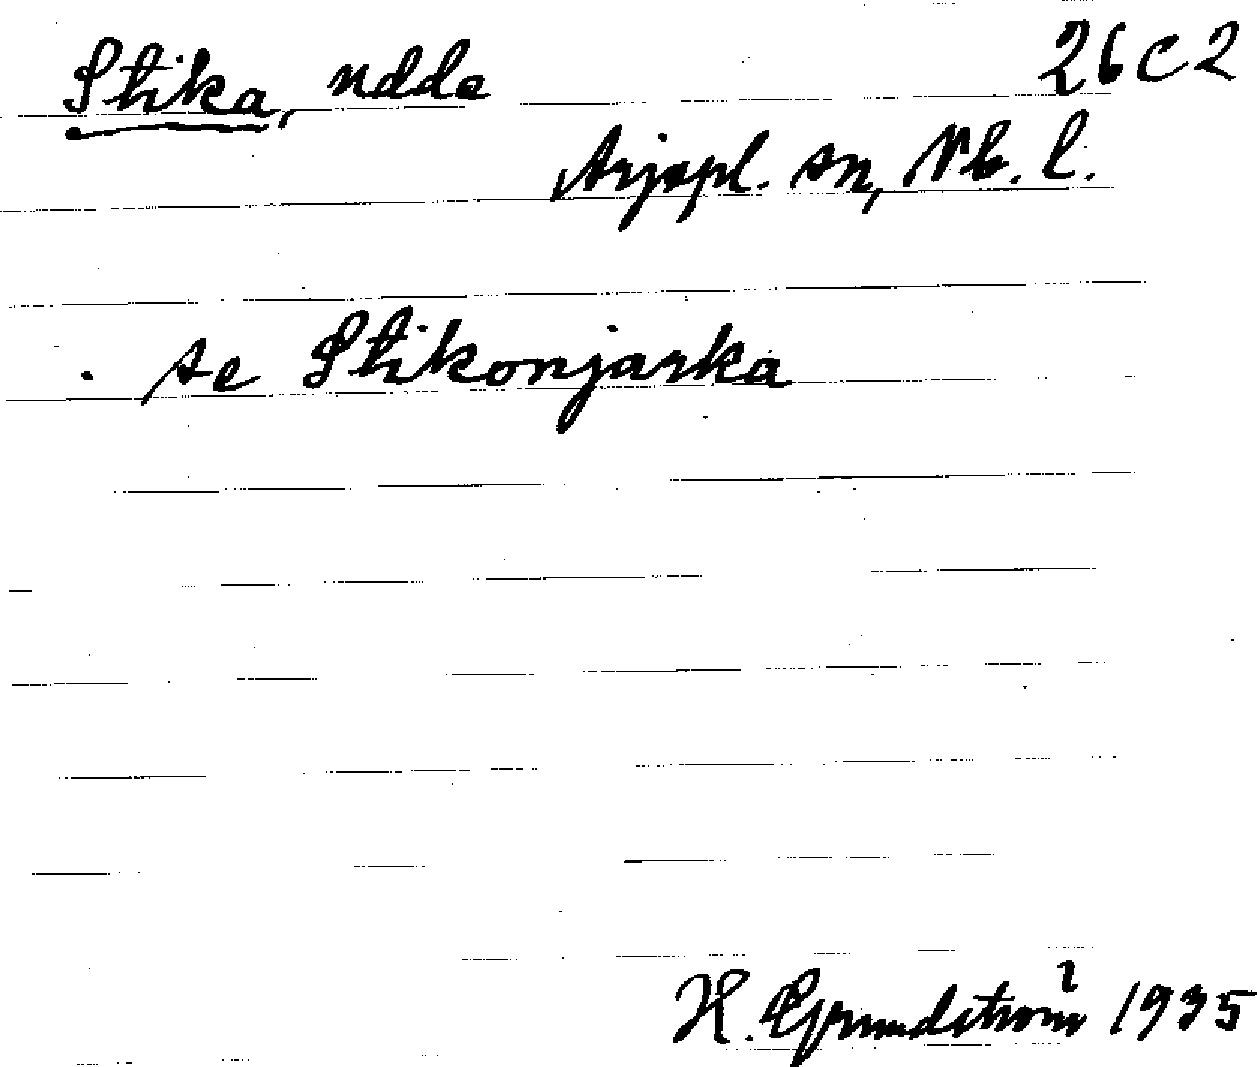 Stika, udde 26 C 2
Arjepl. sn, Nb. l.
se Stikonjarka
H. Grundström 1935